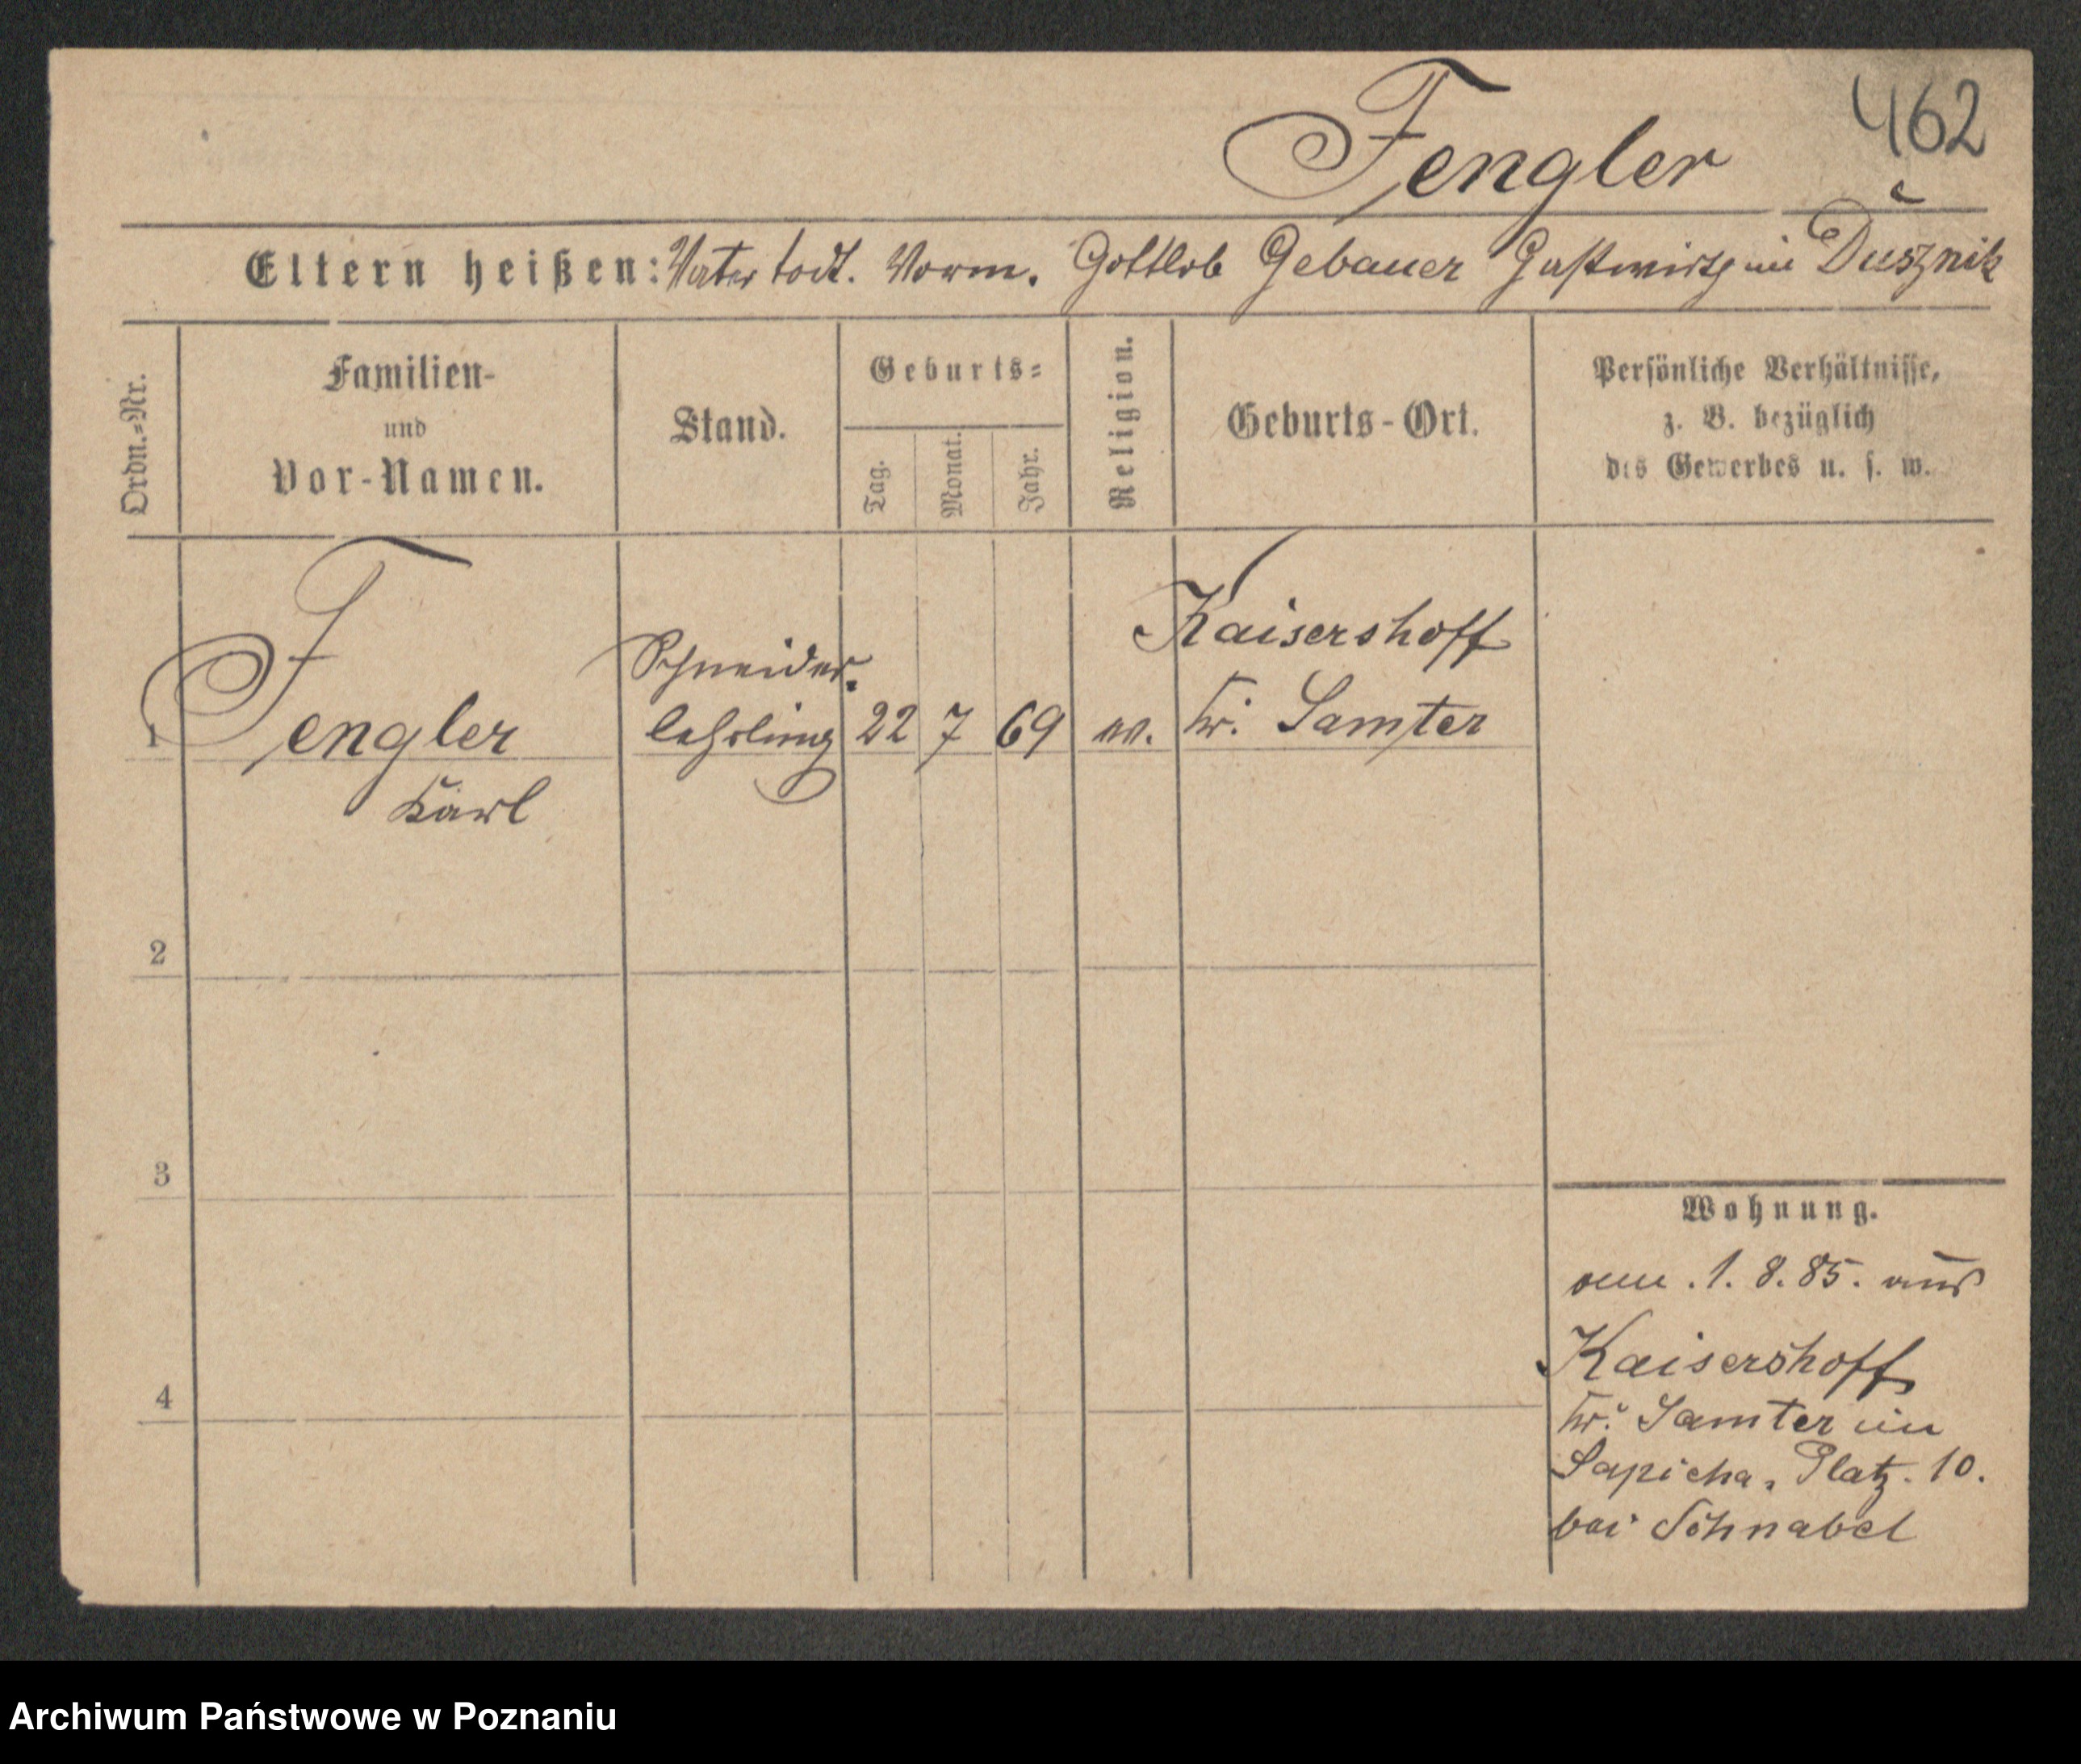 462
Fengler
Eltern heißen: Vater todt. Vorm. Gottlob Gebauer Gastwirth in Dusznik
Ordn.=Nr.
Familien-
und
Vor-Namen.
Stand.
Geburts=
Tag.
Monat.
Jahr.
Religion.
Geburts-Ort.
Persönliche Verhältnisse,
z. B. bezüglich
des Gewerbes u. s. w.
Kaisershoff
Schneider-
1 Fengler lehrling 22 7 69 Kr. Samter
Karl
2
3
4
Wohnung.
1. 8. 85. aus
Kaisershoff
Kr. Samter in
Sapieha, Platz. 10.
bei Schnabel
Archiwum Państwowe w Poznaniu